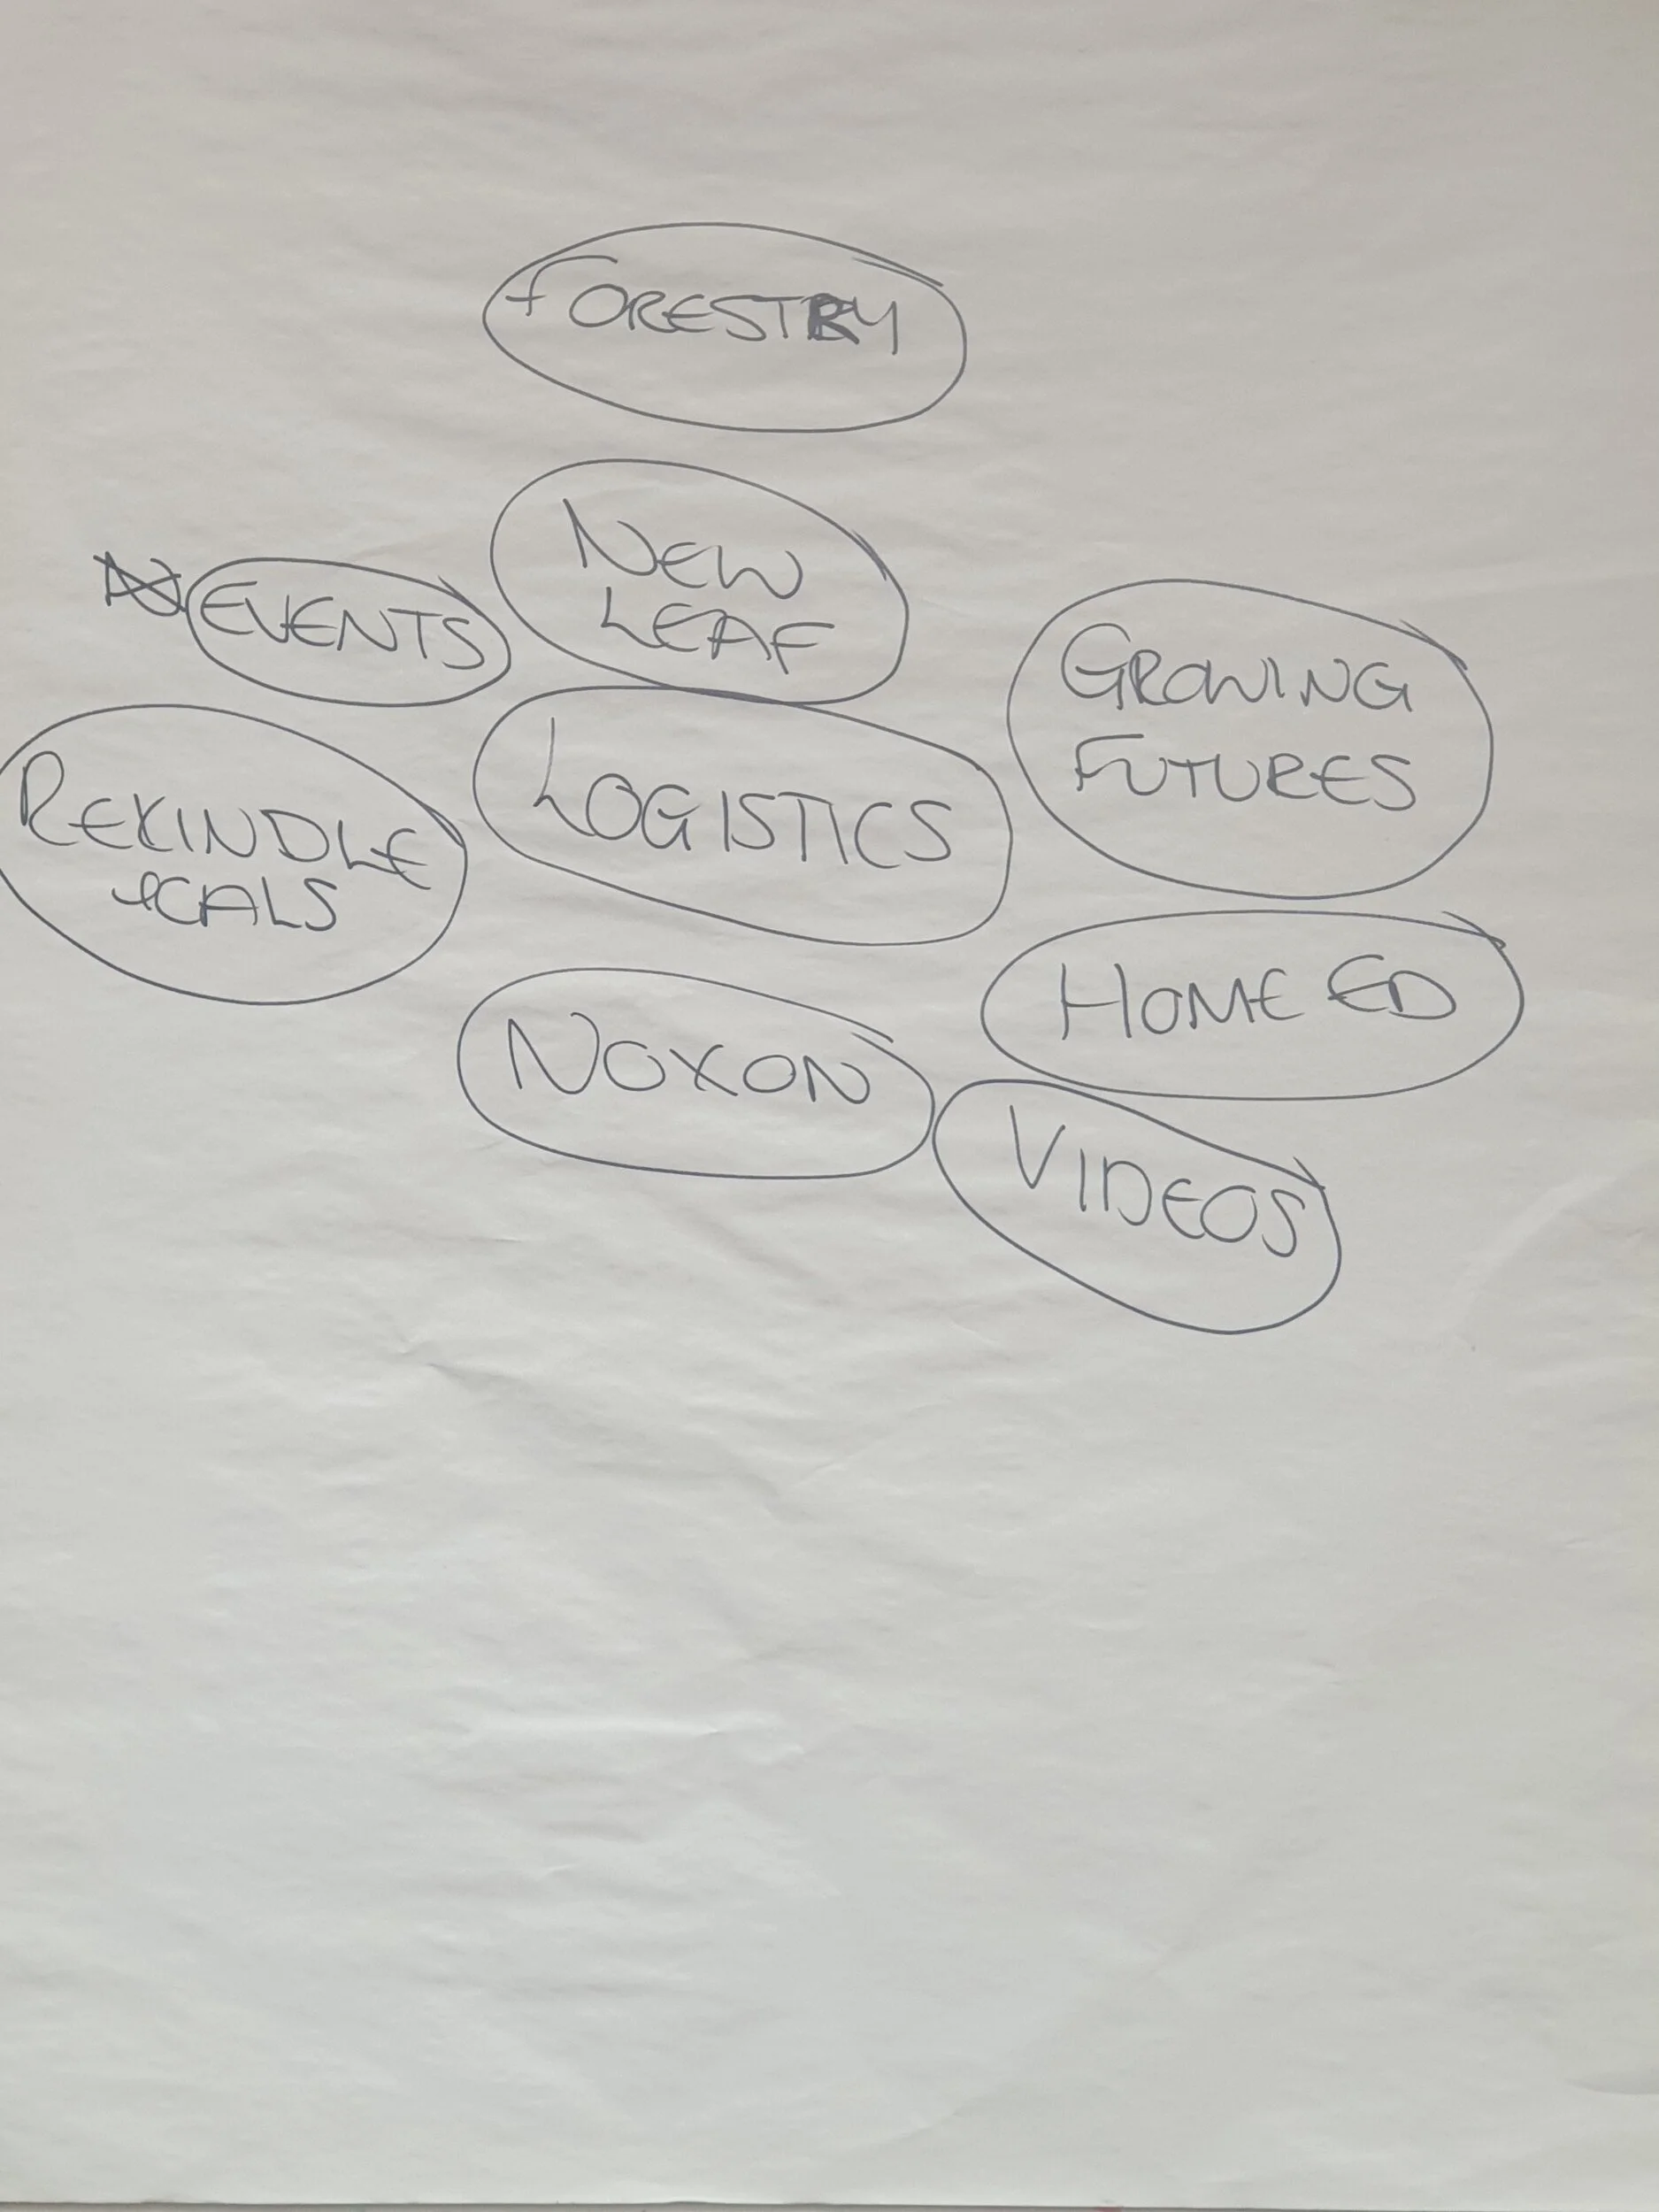 FORESTRY
NEW
LEAF
EVENTS
GROWING
FUTURES
LOGISTICS
REKINDLE
&CALS
HOME ED
NOXON
VIDEOS